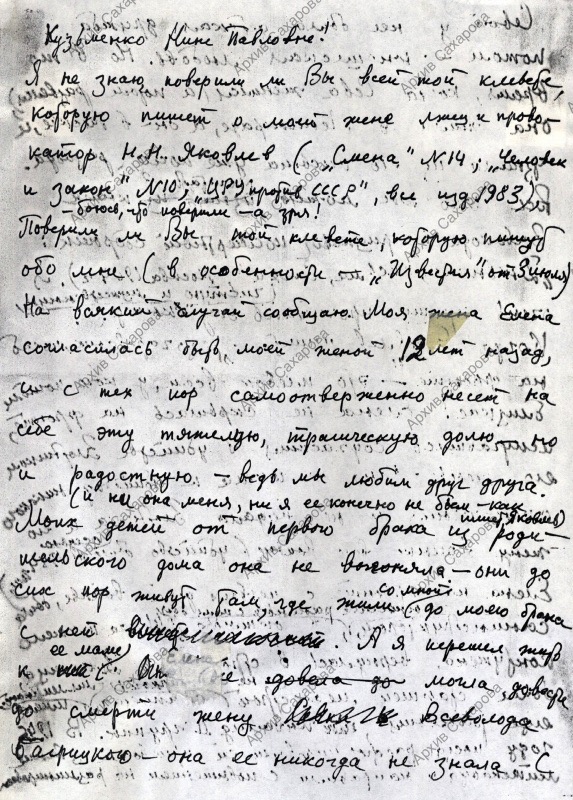 Кузьменко Нине Павловне!
Я не знаю, поверили ли Вы всей той клевете,
которую пишет о моей жене лжец и прово-
катор Н.Н. Яковлев („Смена" №14; „Человек
и закон" №10; „ЦРУ против СССР", все изд 1983)
– боюсь, что поверили – а зря!
Поверили ли Вы той клевете, которую пишут
обо мне (в особенности – „Известия" от 3 июля)
На всякий случай сообщаю. Моя жена Елена
согласилась быть моей женой 12 лет назад,
и с тех пор самоотверженно несет на
себе эту тяжелую, трагическую долю – но
и радостную, – ведь мы любим друг друга.
(и ни она меня, ни я ее конечно не бьем – как
пишет Яковлев)
Моих детей от первого брака из роди-
тельского дома она не выгоняла – они до
сих пор живут там, где жили со мной до моего брака
с ней А я переехал жить
к ее маме
Елена не могла довести
до смерти жену Всеволода
Багрицкого – она ее никогда не знала – С
Архив Сахарова